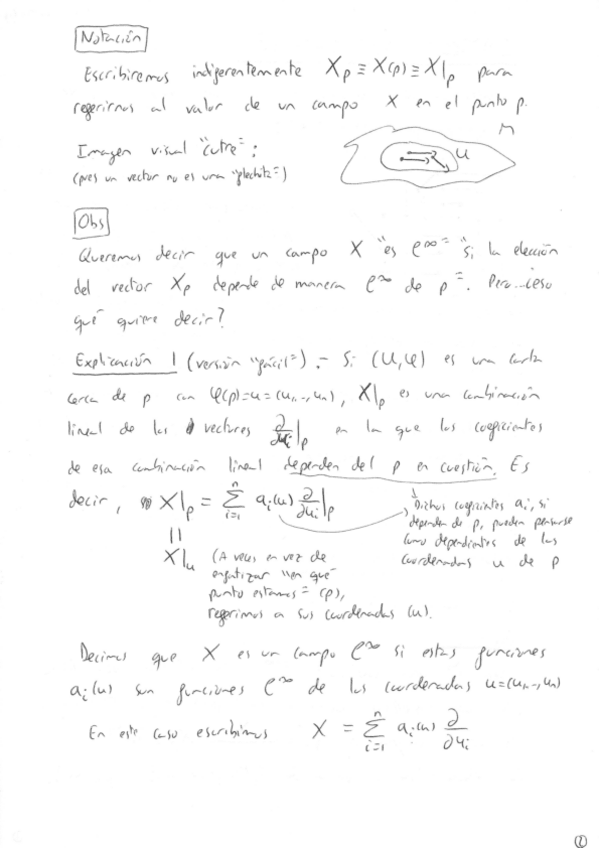 Notación
Escribiremos indiferentemente X_p ≡ X(p) ≡ X|_p para
referirnos al valor de un campo X en el punto p.
M
Imagen visual "cutre":
U
(pues un vector no es una "flechita")
Obs
Queremos decir que un campo X "es C^∞" "si la elección
del vector X_p depende de manera C^∞ de p". Pero...¿eso
qué quiere decir?
Explicación 1 (versión "fácil").- Si (U,φ) es una carta
cerca de p con φ(p)=u=(u_1,..,u_n), X|_p es una combinación
lineal de los vectores ∂/∂u_i|_p en la que los coeficientes
de esa combinación lineal dependen del p en cuestión. Es
decir, X|_p = Σ_{i=1}^n a_i(u) ∂/∂u_i|_p
Dichos coeficientes a_i, si
dependen de p, pueden pensarse
como dependientes de las
coordenadas u de p
||
X|_u (A veces en vez de
enfatizar "en qué
punto estamos" (p),
referimos a sus coordenadas (u).
Decimos que X es un campo C^∞ si estas funciones
a_i(u) son funciones C^∞ de las coordenadas u=(u_1,..,u_n)
En este caso escribimos X = Σ_{i=1}^n a_i(u) ∂/∂u_i
2